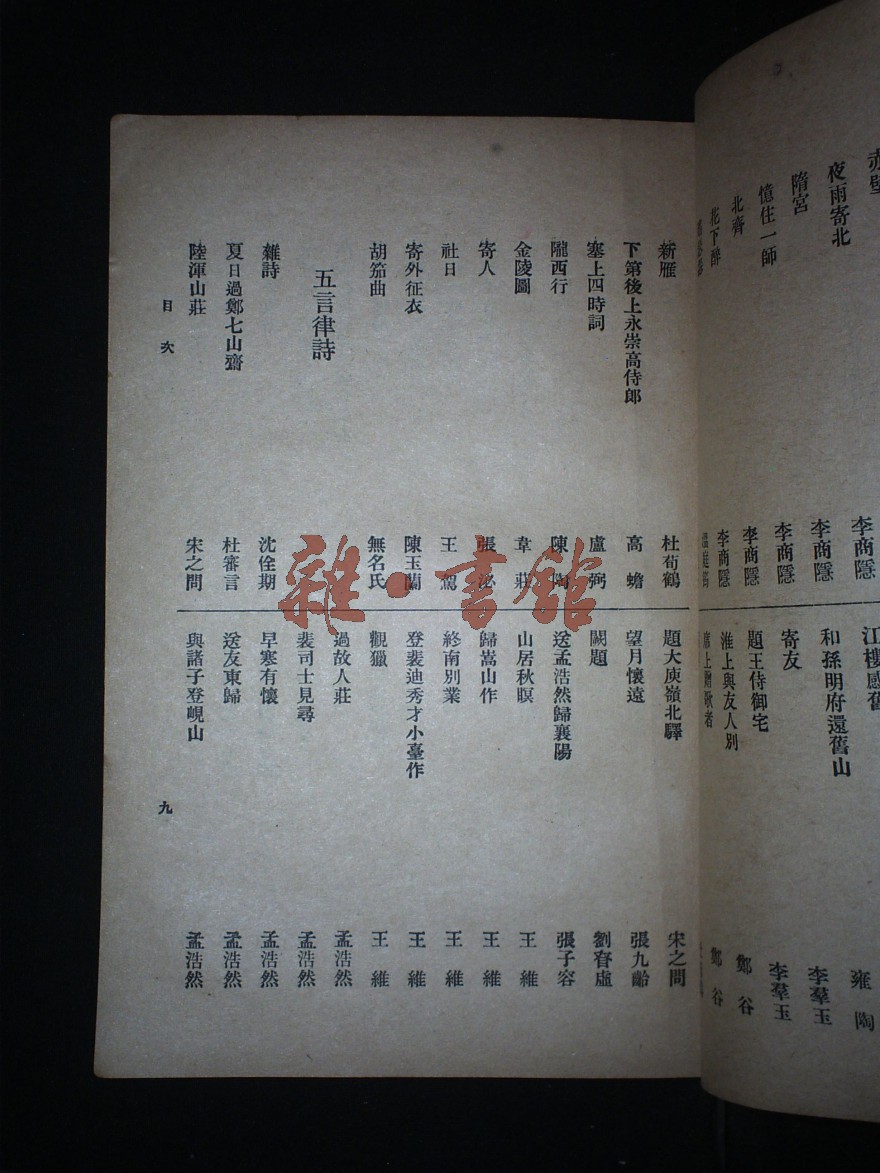 赤壁 李商隱
夜雨寄北 李商隱
隋宮 李商隱
憶住一師 李商隱
北齊 李商隱
花下醉 李商隱
江樓感舊 雍陶
和孫明府還舊山 李羣玉
寄友 李羣玉
題王侍御宅 鄭谷
淮上與友人別 鄭谷
席上贈歌者
新雁 杜荀鶴
下第後上永崇高侍郎 高蟾
塞上四時詞 盧弼
隴西行 陳陶
金陵圖 韋莊
寄人 張泌
社日 王駕
寄外征衣 陳玉蘭
胡笳曲 無名氏
五言律詩
雜詩 沈佺期
夏日過鄭七山齋 杜審言
陸渾山莊 宋之問
題大庾嶺北驛 宋之問
望月懷遠 張九齡
闕題 劉眘虛
送孟浩然歸襄陽 張子容
山居秋暝 王維
歸嵩山作 王維
終南別業 王維
登裴迪秀才小臺作 王維
觀獵 王維
過故人莊 孟浩然
裴司士見尋 孟浩然
早寒有懷 孟浩然
送友東歸 孟浩然
與諸子登峴山 孟浩然
目次
九
雜·書館